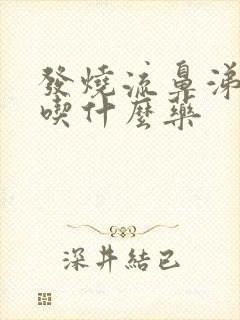 發燒流鼻涕
喫什麼藥
深井結己